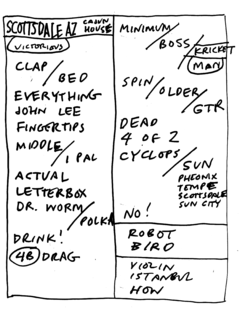 SCOTTSDALE AZ CAJUN HOUSE
VICTORIOUS
CLAP /
BED
EVERYTHING
JOHN LEE
FINGERTIPS
MIDDLE /
1 PAL
ACTUAL
LETTERBOX
DR. WORM /
POLKA
DRINK!
4B DRAG
MINIMUM /
BOSS / KRICKET
MAN
SPIN /
OLDER /
GTR
DEAD
4 OF 2
CYCLOPS /
SUN
PHEONIX
TEMPE
SCOTTSDALE
SUN CITY
NO!
ROBOT
BIRD
VIOLIN
ISTANBUL
HOW